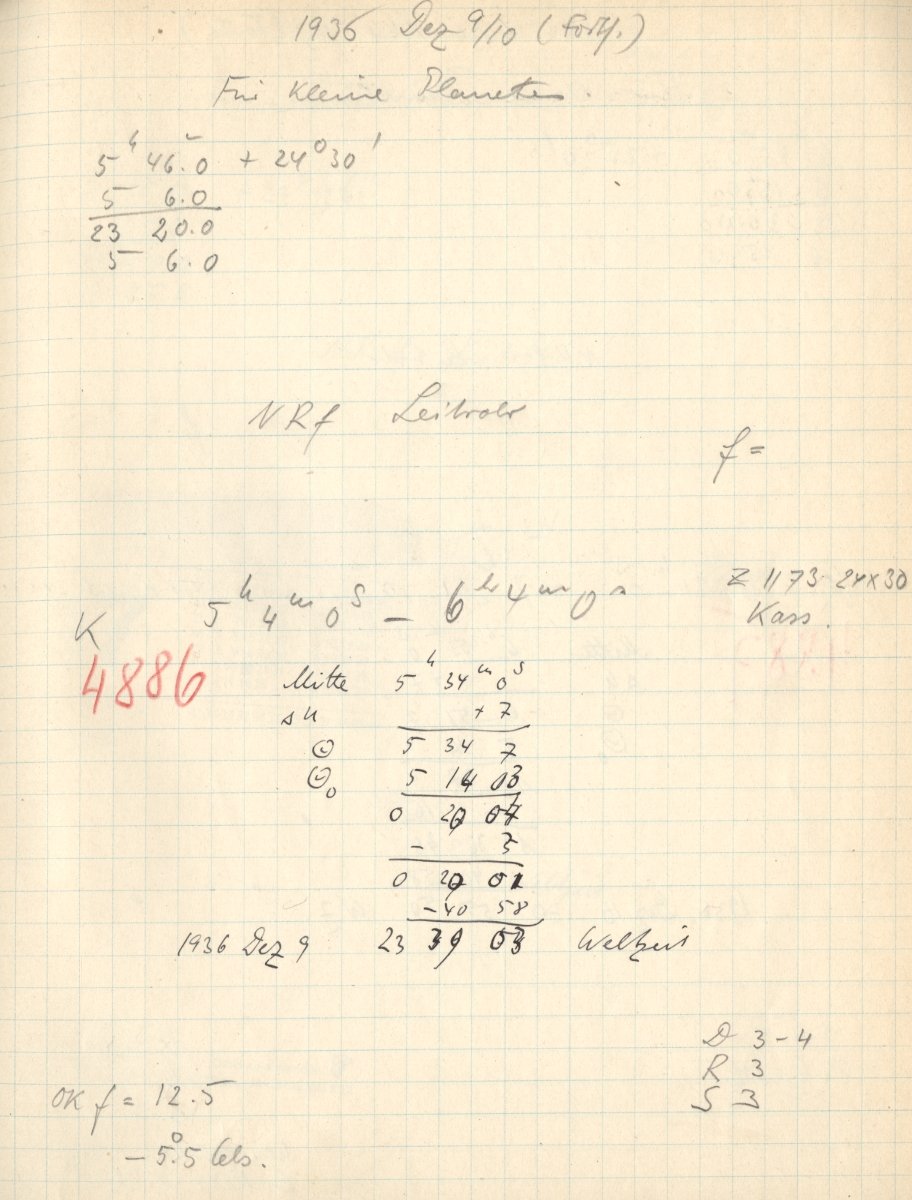 1936 Dez 9/10 (Forts.)
Für kleine Planeten.
5ʰ 46.0 + 24°30'
5 6.0
23 20.0
5 6.0
NRf Leitrohr
f =
Z 1173 24x30
Kass.
K 5ʰ4ᵐ0ˢ – 6ʰ4ᵐ0ˢ
4886
Mitte 5ʰ 34ᵐ0ˢ
su + 7
☉ 5 34 7
☉₀ 5 14 03
0 20 04
– 3
0 20 01
– 40 58
1936 Dez 9 23 39 03 Weltzeit
D 3–4
R 3
S 3
OK f = 12.5
– 5°.5 Cels.